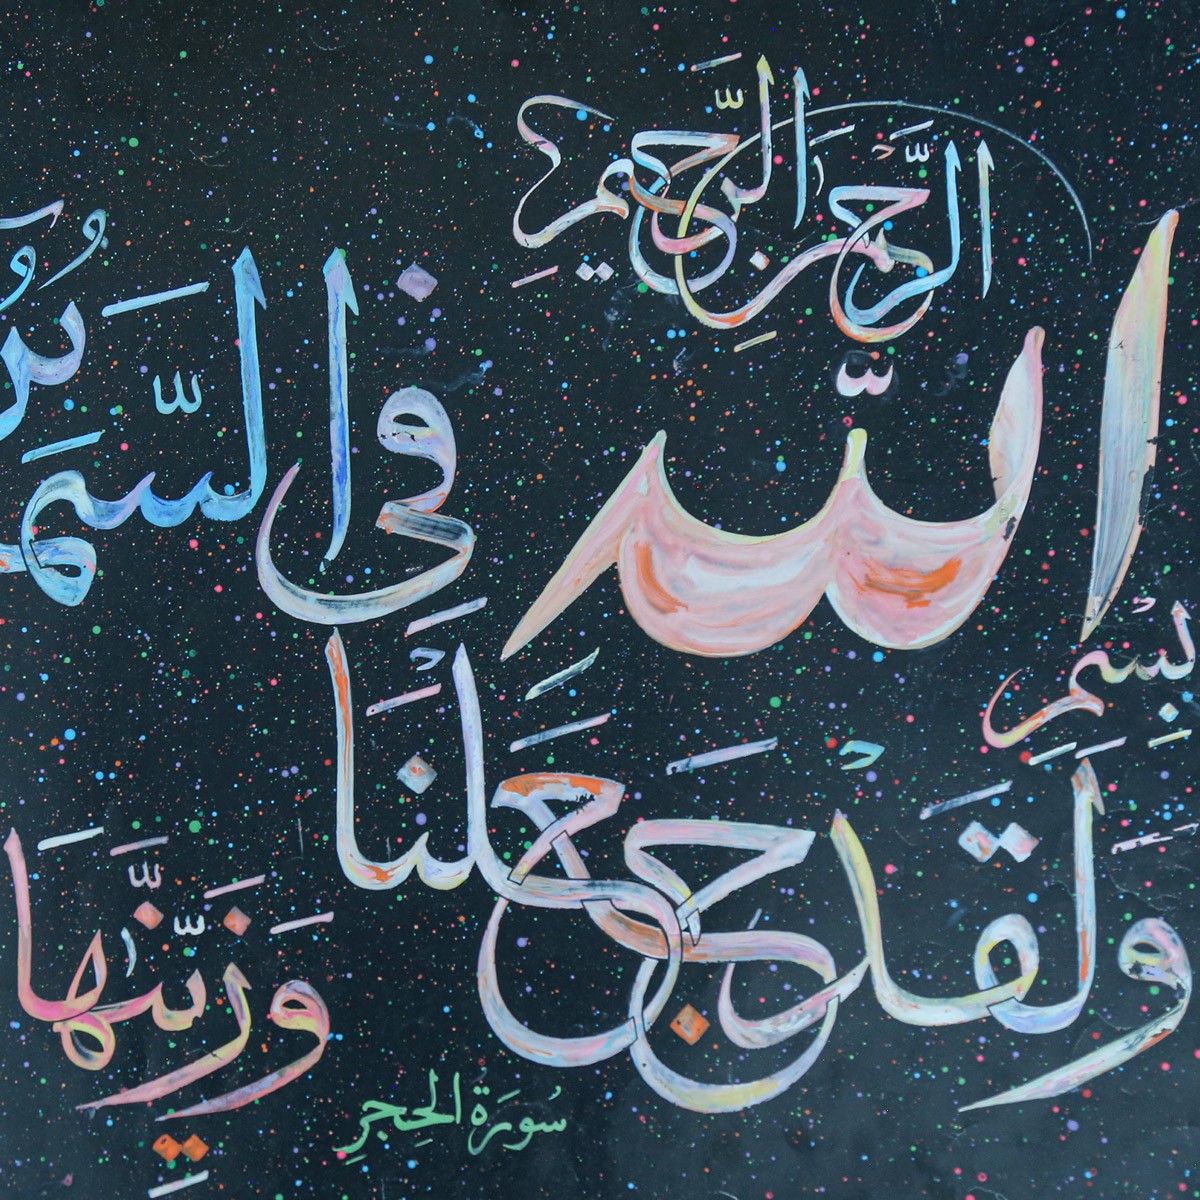 بِسْمِ اللّٰهِ الرَّحْمٰنِ الرَّحِيمِ
وَلَقَدْ جَعَلْنَا فِى السَّمَ
وَزَيَّنّٰهَا
سُورَةُ الحِجرِ